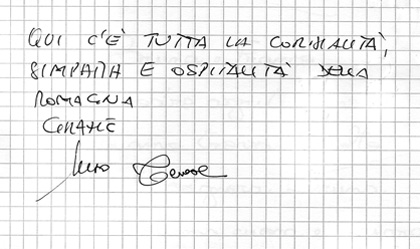 QUI C'È TUTTA LA CORDIALITÀ,
SIMPATIA E OSPITALITÀ DELLA
ROMAGNA
GRAZIE